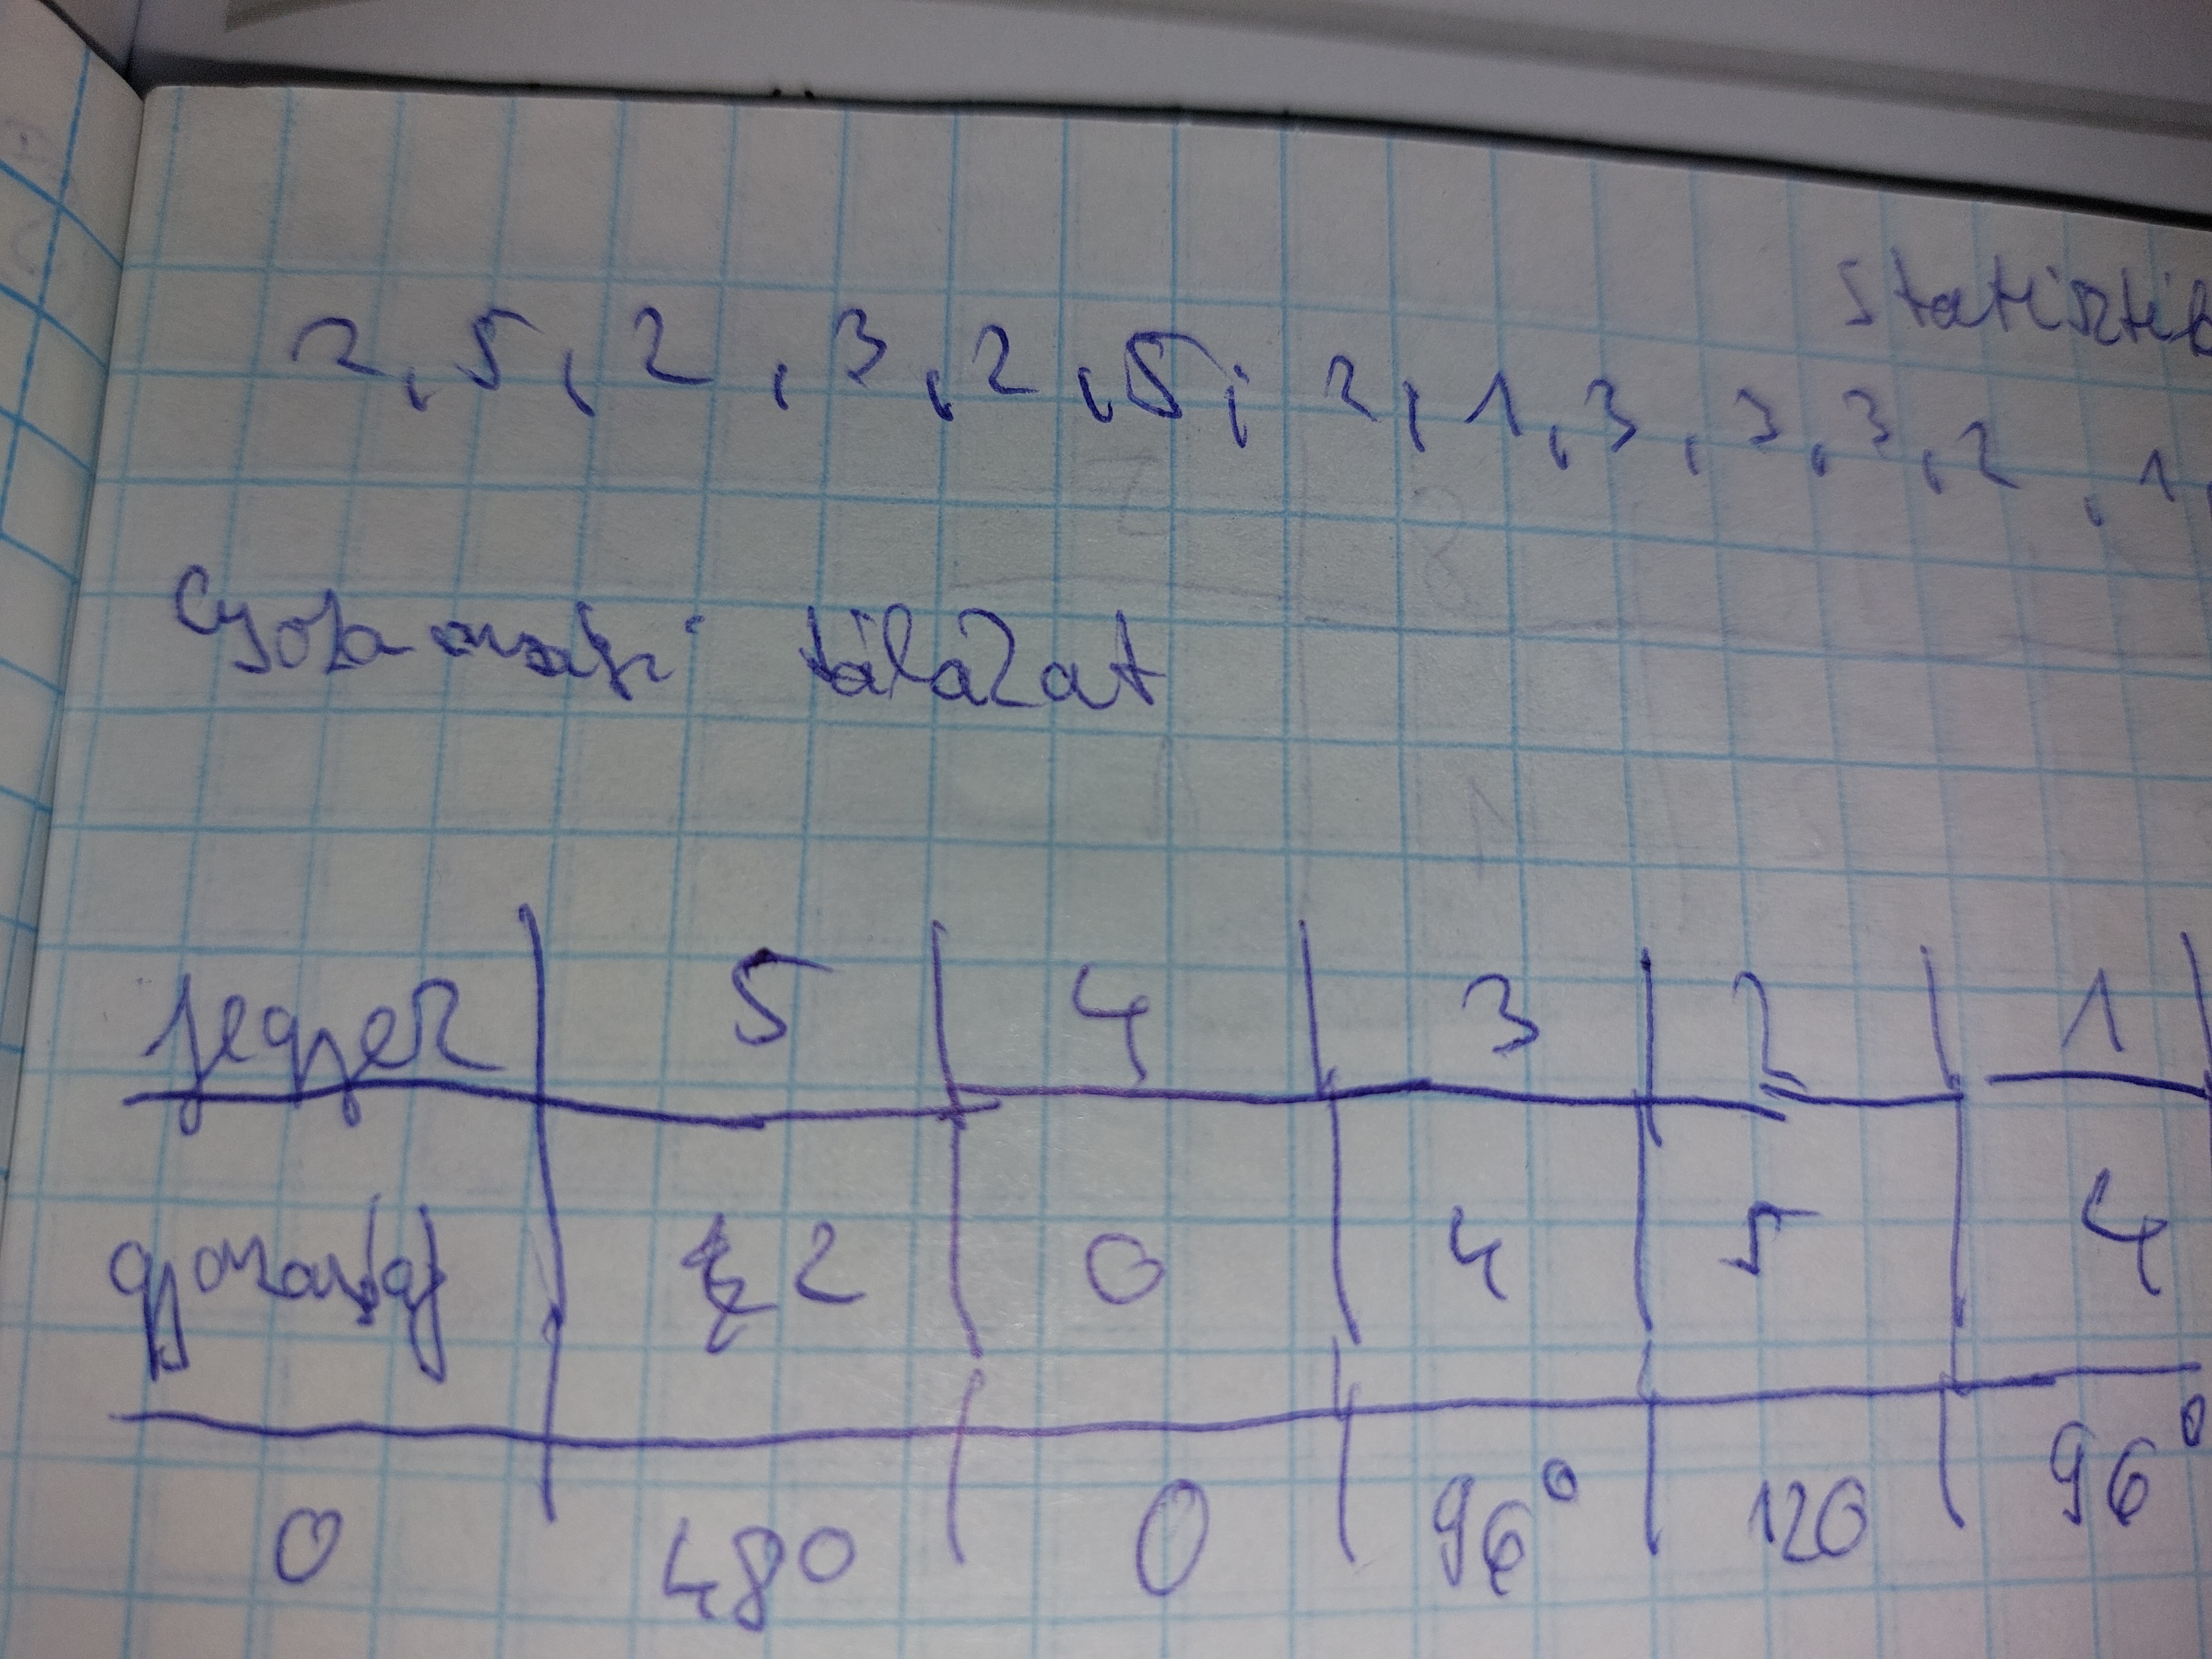 Statisztik
2, 5, 2, 3, 2, 5, 2, 1, 3, 3, 3, 2, 1,
Gyakorisági tálázat
jegyek 5 4 3 2 1
gyoriság 2 0 4 5 4
0 48° 0 96° 120 96°